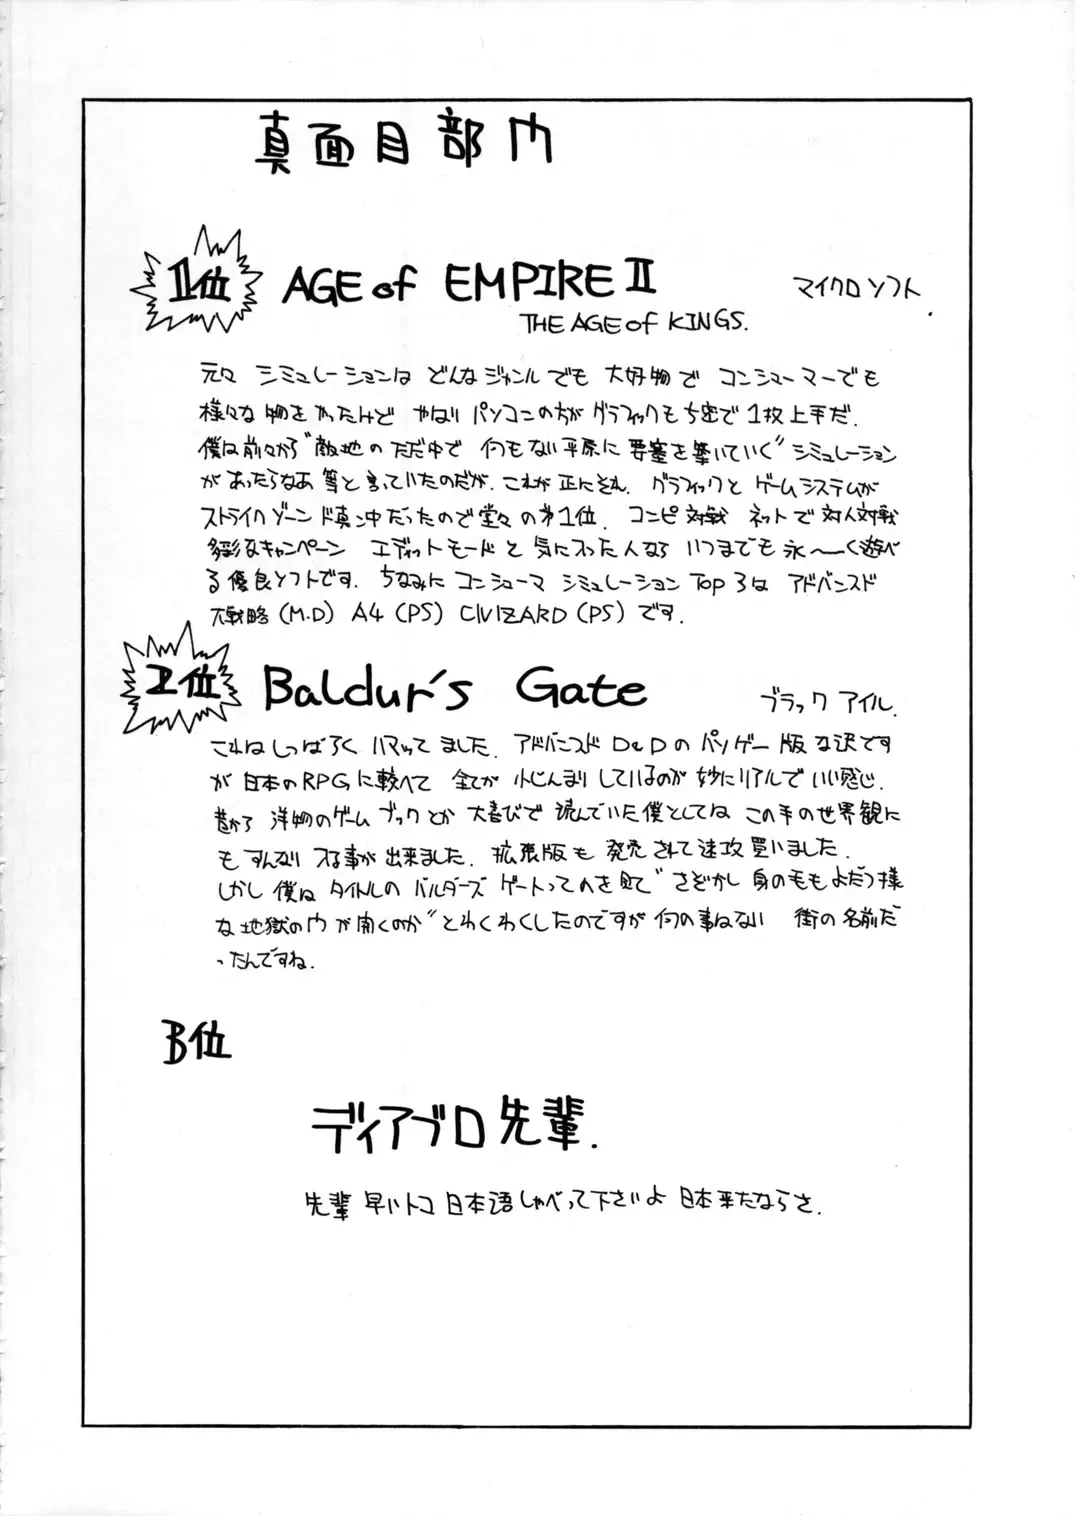 真面目部門
1位 AGE of EMPIRE II マイクロソフト.
THE AGE of KINGS.
元々 シミュレーションは どんなジャンルでも 大好物で コンシューマーでも
様々な物をやったけど やはり パソコンの方が グラフィックも ち密で 1枚上手だ.
僕は前々から"敵地のただ中で 何もない平原に 要塞を築いていく"シミュレーション
があったらなあ 等と言っていたのだが. これが 正にそれ. グラフィックと ゲームシステムが
ストライクゾーン ド真ン中だったので堂々の第1位. コンピ対戦 ネットで対人対戦
多彩なキャンペーン エディットモードと 気に入った人なら いつまでも 永〜く遊べ
る優良ソフトです. ちなみに コンシューマ シミュレーション Top 3は アドバンスド
大戦略 (M.D) A4 (PS) CIVIZARD (PS) です.
2位 Baldur's Gate ブラック アイル.
これはしっばらく ハマッてました. アドバンスド D&Dの パソゲー版な訳です
が 日本のRPGに較べて 全てが 小じんまりしているのが 妙にリアルで いい感じ.
昔から 洋物のゲームブックとか 大喜びで 読んでいた僕としてね この手の世界観に
もすんなり 入る事が出来ました. 拡張版も 発売されて速攻買いました.
しかし 僕は タイトルの バルダーズ ゲートってのを見て"さぞかし 身の毛もよだつ様
な 地獄の門が開くのか"とわくわくしたのですが 何の事ねない 街の名前だ
ったんですね.
3位
ディアブロ先輩.
先輩 早いトコ 日本語しゃべって下さいよ 日本来たならさ.